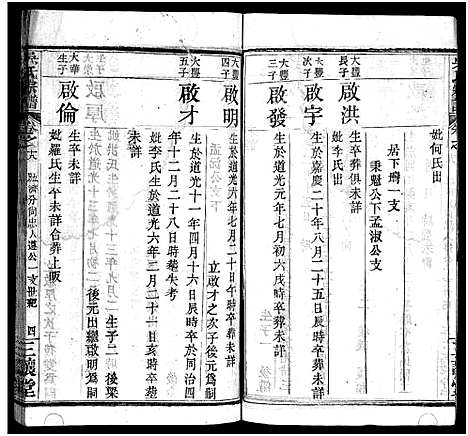 妣何氏出
居下壪一支
秉魁公下孟淑公支
大豐長子
啟洪
生卒葬俱未詳
妣李氏出
大豐次子
啟宇
生於嘉慶二十年八月二十五日辰時卒葬未詳
大豐三子
啟發
生於道光元年七月初六戌時卒葬未詳
大豐四子
啟明
生於道光元年七月二十日午時卒葬
未詳
立啟才之次子後元為嗣
大豐五子
啟才
生於道光十一年四月十六日辰時卒於同治四
年十二月二十八日時葬失考
妣李氏生於道光六年三月二十日亥時卒葬
未詳
生子二
後梁
後元出繼啟明為嗣
大華生子
啟倫
生卒未詳
妣羅氏生卒未詳合葬上坂
吳氏宗譜
卷之六
四
三讓堂